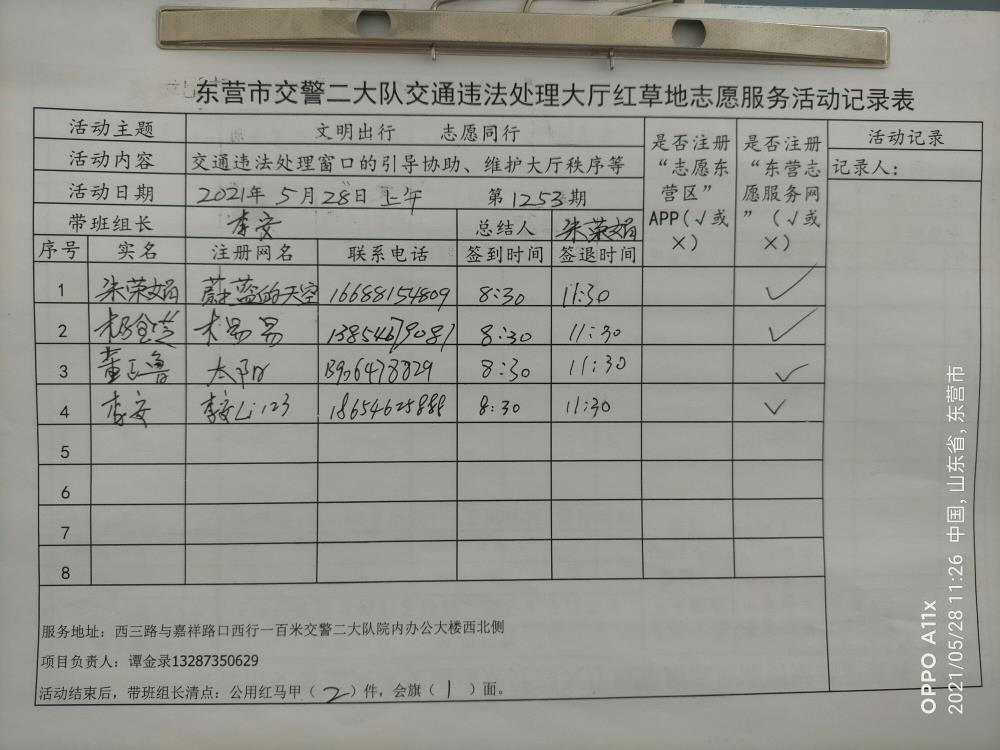 东营市交警二大队交通违法处理大厅红草地志愿服务活动记录表
活动主题 文明出行 志愿同行 是否注册“志愿东营区”APP(√或×) 是否注册“东营志愿服务网”(√或×) 活动记录
活动内容 交通违法处理窗口的引导协助、维护大厅秩序等 记录人:
活动日期 2021年5月28日上午 第1253期
带班组长 李安 总结人 朱荣娟
序号 实名 注册网名 联系电话 签到时间 签退时间
1 朱荣娟 蔚蓝的天空 16688154809 8:30 11:30 ✓
2 木易易 13854679087 8:30 11:30 ✓
3 董正鲁 太阳 13906478829 8:30 11:30 ✓
4 李安 李安Li123 18654625888 8:30 11:30 ✓
5
6
7
8
服务地址:西三路与嘉祥路口西行一百米交警二大队院内办公大楼西北侧
项目负责人:谭金录13287350629
活动结束后,带班组长清点:公用红马甲(2)件,会旗(1)面。
OPPO A11x
2021/05/28 11:26 中国,山东省,东营市